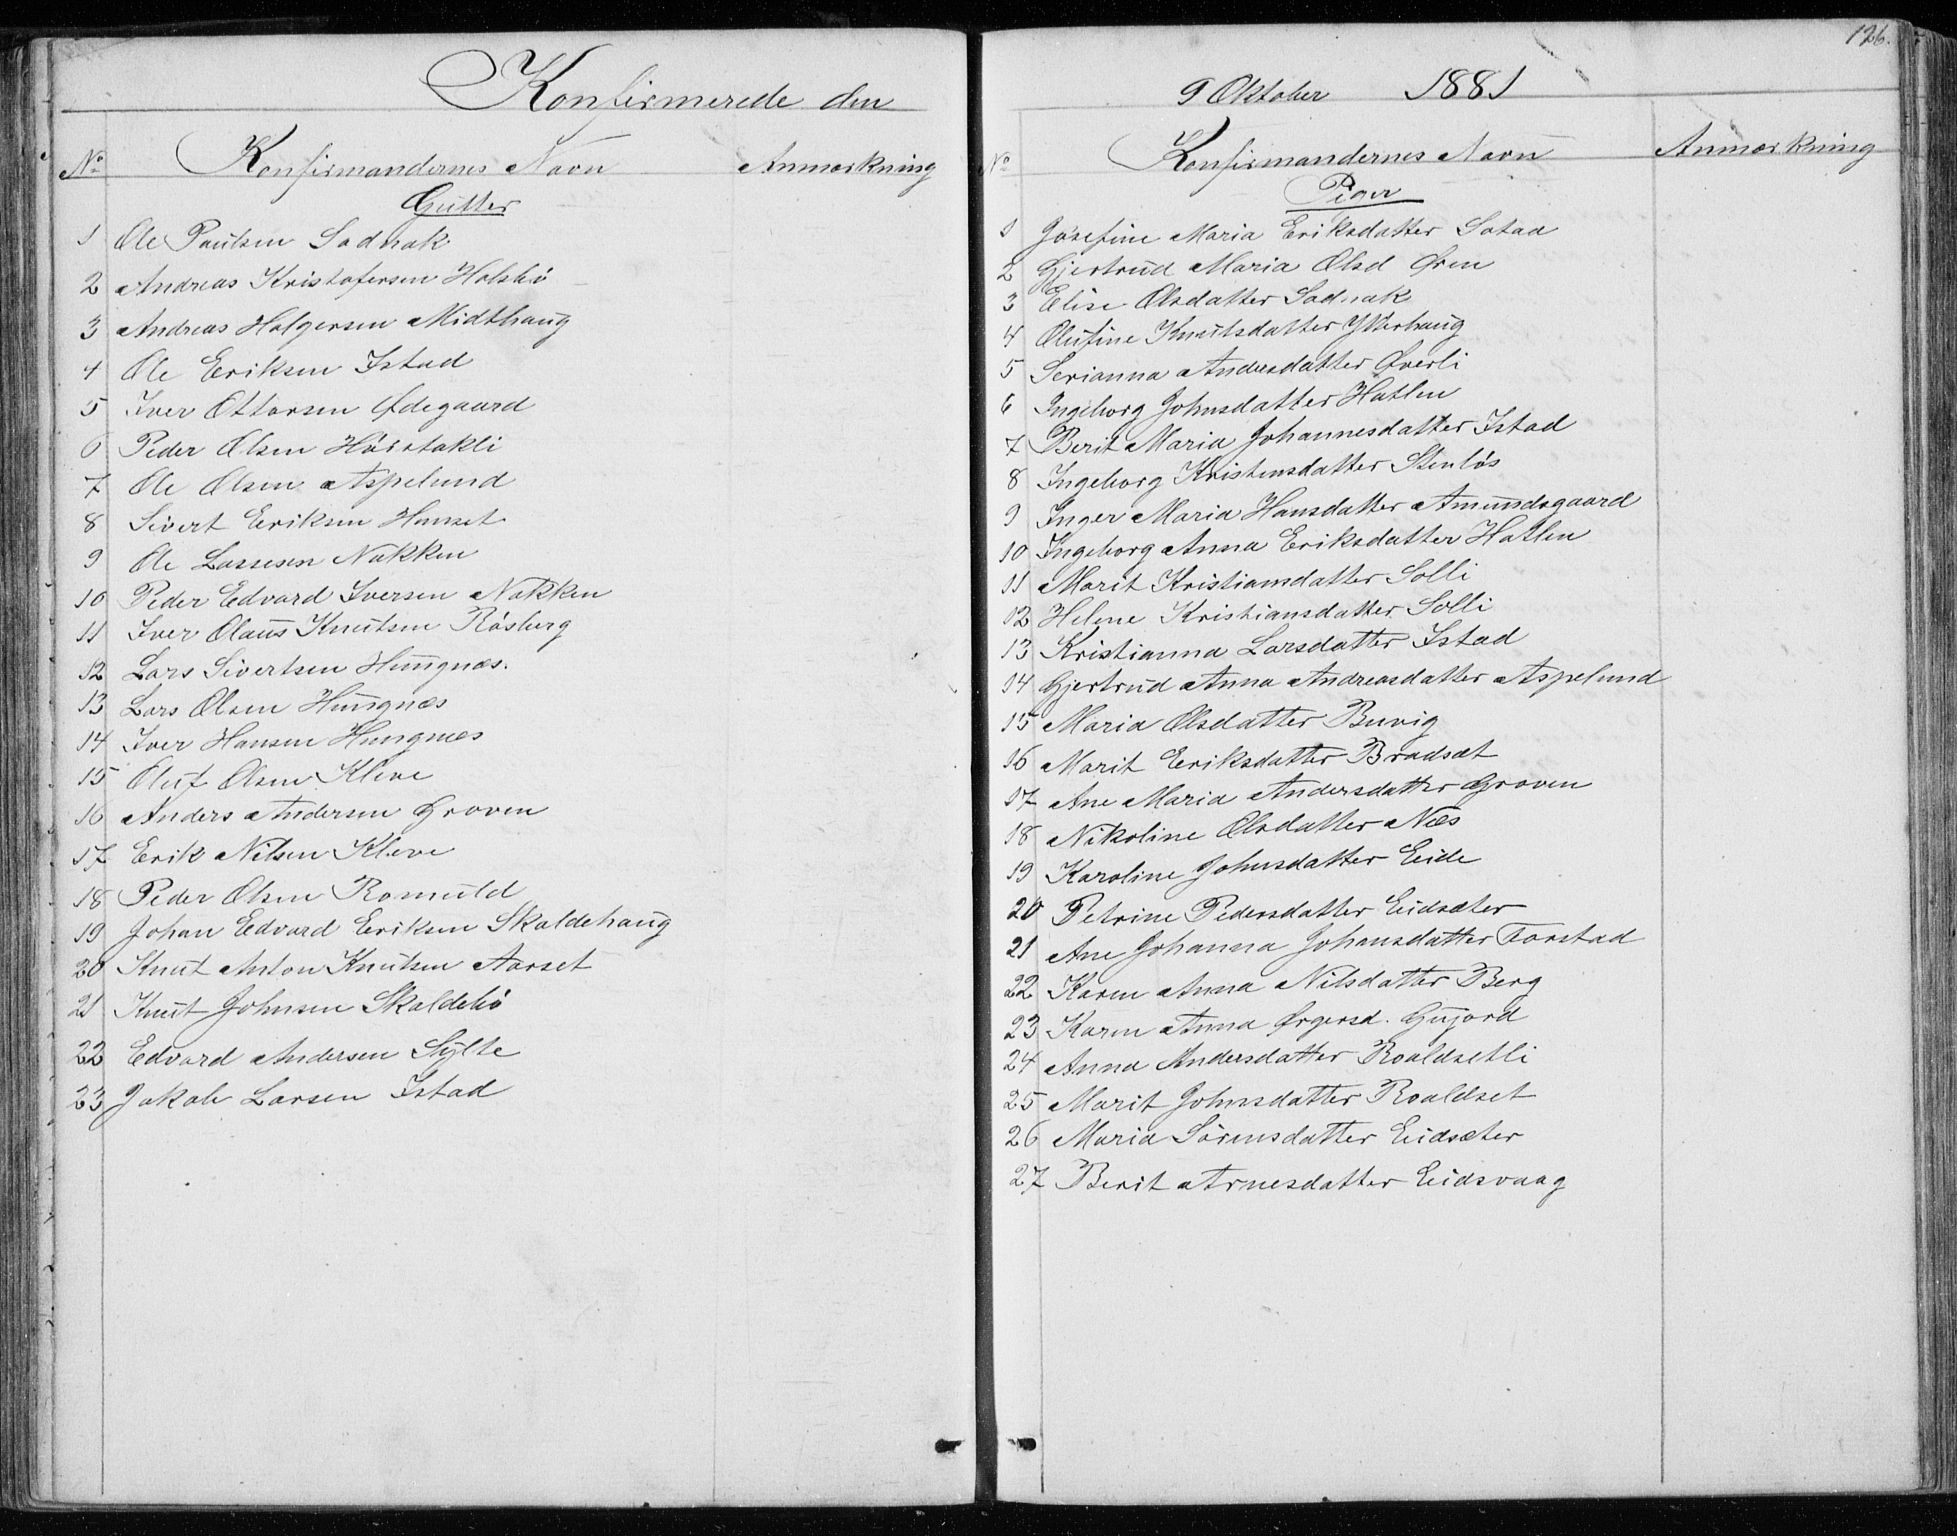 126.
Konfirmerede den
No Konfirmandernes Navn Anmærkning
Gutter
1 Ole Paulsen Sødnak
2 Andreas Kristofersen Holsbö
3 Andreas Holgersen Midthaug
4 Ole Eriksen Istad
5 Iver Ottersen Ødegaard
6 Peder Olsen
7 Ole Olsen Aspelund
8 Sivert Eriksen Hunset
9 Ole Lassesen Nakken
10 Peder Edvard Iversen Nakken
11 Iver Olaus Knutsen Rösberg
12 Lars Sivertsen Hungnæs.
13 Lars Olsen Hungnæs
14 Iver Hansen Hungnæs
15 Oluf Olsen Kleve
16 Anders Andersen Groven
17 Erik Nilsen Kleve
18 Peder Olsen Romuld
19 Johan Edvard Eriksen Skaldehaug
20 Knut Anton Knutsen Aarset
21 Knut Johnsen Skaldebö
22 Edvard Andersen Sylte
23 Jakob Larsen Istad
9 Oktober 1881
No Konfirmandernes Navn Anmærkning
Piger
1 Josefine Maria Eriksdatter Sotaa
2 Gjertrud Maria Olsd Øren
3 Elise Olsdatter Sødnak
4 Olufine Knutsdatter Ytterhaug
5 Serianna Andersdatter Øverli
6 Ingeborg Johnsdatter Hatlen
7 Berit Maria Johannesdatter Istad
8 Ingeborg Kristensdatter Stenlös
9 Inger Maria Hansdatter Amundsgaard
10 Ingeborg Anna Eriksdatter Hatlen
11 Marit Kristiansdatter Solli
12 Helene Kristiansdatter Solli
13 Kristianna Larsdatter Istad
14 Gjertrud Anna Andreasdatter Aspelund
15 Maria Olsdatter Buvig
16 Marit Eriksdatter Bradsæt
17 Ane Maria Andersdatter Groven
18 Nikoline Olsdatter Næs
19 Karoline Johnsdatter Eide
20 Petrine Pedersdatter Eidsæter
21 Ane Johanna Johansdatter Torstad
22 Karen Anna Nilsdatter Berg
23 Karen Anna Ørgersd. Gujord
24 Anna Andersdatter Roaldsetli
25 Marit Johnsdatter Roaldset
26 Maria Sörensdatter Eidsæter
27 Berit Arnesdatter Eidsvaag